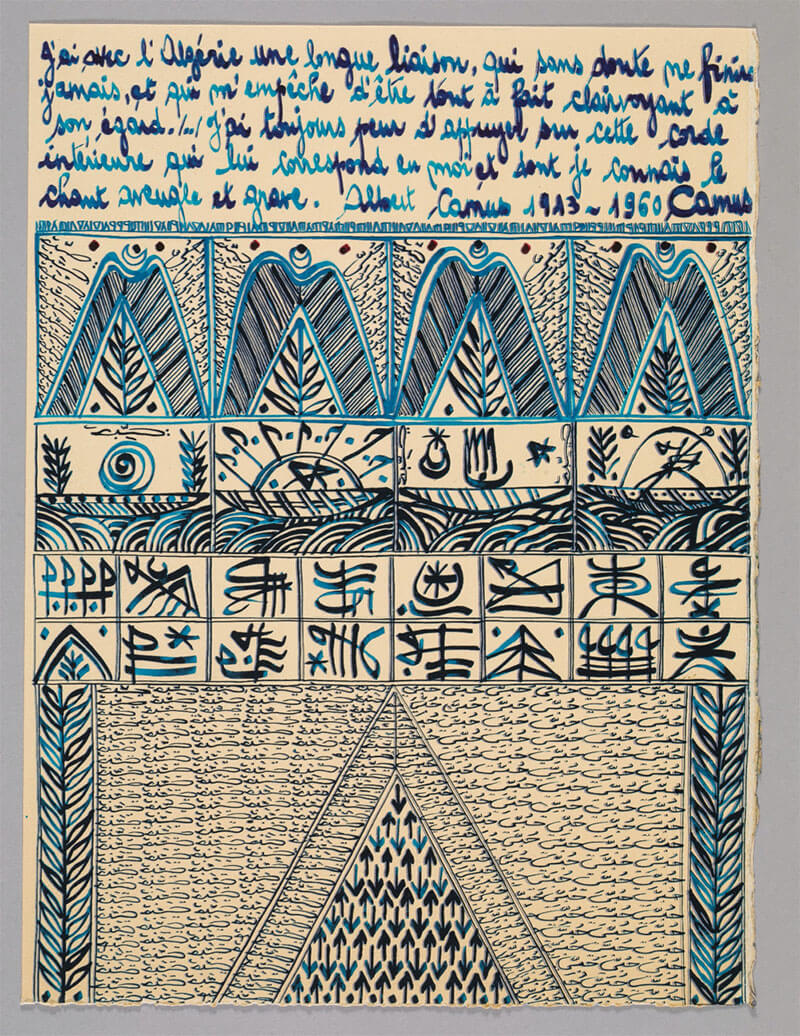 j'ai avec l'Algérie une longue liaison, qui sans doute ne finira
jamais, et qui m'empêche d'être tout à fait clairvoyant à
son égard. /../ j'ai toujours peur d'appuyer sur cette corde
intérieure qui lui correspond en moi et dont je connais le
chant aveugle et grave. Albert Camus 1913 ~ 1960 Camus